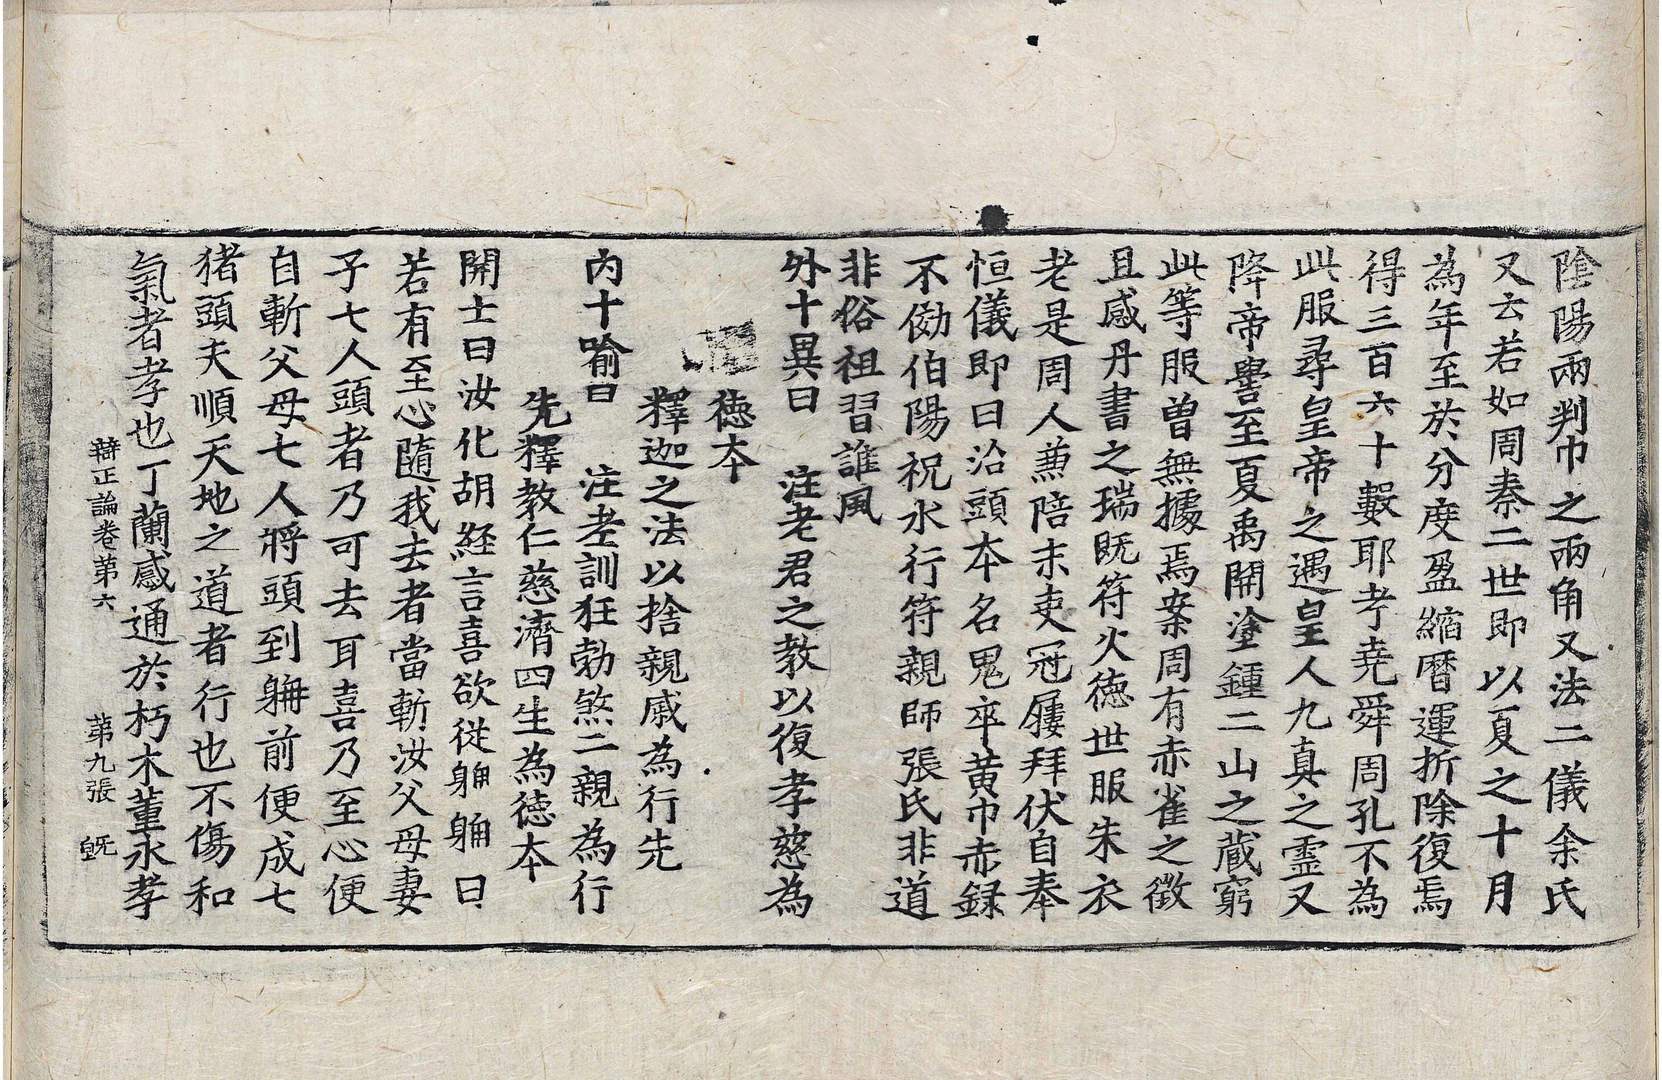 陰陽兩判巾之兩角又法二儀余氏
又云若如周秦二世即以夏之十月
為年至於分度盈縮曆運折除復焉
得三百六十數耶考堯舜周孔不為
此服尋皇帝之遇皇人九真之靈又
降帝嚳至夏禹開塗鍾二山之蔵窮
此等服曽無據焉案周有赤雀之徵
且感丹書之瑞既符火徳世服朱衣
老是周人兼陪末吏冠屨拜伏自奉
恒儀即曰治頭本名鬼卒黄巾赤録
不効伯陽祝水行符親師張氏非道
非俗祖習誰風
外十異曰　注老君之教以復孝慈為
徳本
釋迦之法以捨親戚為行先
內十喻曰　注老訓狂勃煞二親為行
先釋教仁慈濟四生為徳本
開士曰汝化胡経言喜欲従躰躰曰
若有至心隨我去者當斬汝父母妻
子七人頭者乃可去耳喜乃至心便
自斬父母七人將頭到躰前便成七
猪頭夫順天地之道者行也不傷和
氣者孝也丁蘭感通於朽木董永孝
辯正論卷第六　第九張　旣